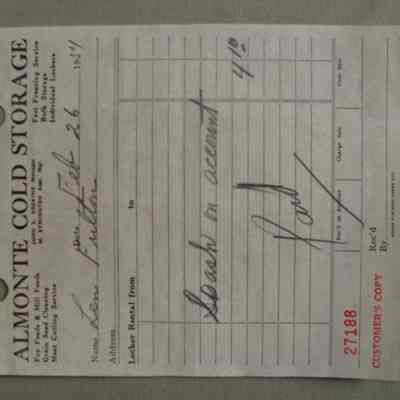 ALMONTE COLD STORAGE
For Feeds & Mill Feeds
Grain Seed Cleaning
Meat Cutting Service
Fast Freezing Service
Bulk Storage
Individual Lockers
Date Feb 26 19
Name Fulton
Address
Locker Rental from to
Cash on account 4
Paid
Rec'd on Account
Charge Sale
Cash Sale
27188
Rec'd
By
CUSTOMER'S COPY